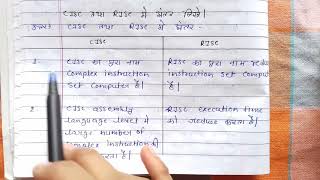 CISC तथा RISC में अंतर लिखो।
उत्तर CISC तथा RISC में अंतर -
CISC RISC
1. CISC का पूरा नाम RISC का पूरा नाम
Complex Instruction Instruction Set Comput
Set Computer है। है।
2. CISC assembly RISC execution time
language level में को reduce करता है।
large number of
Complex Instruction की
करता है।